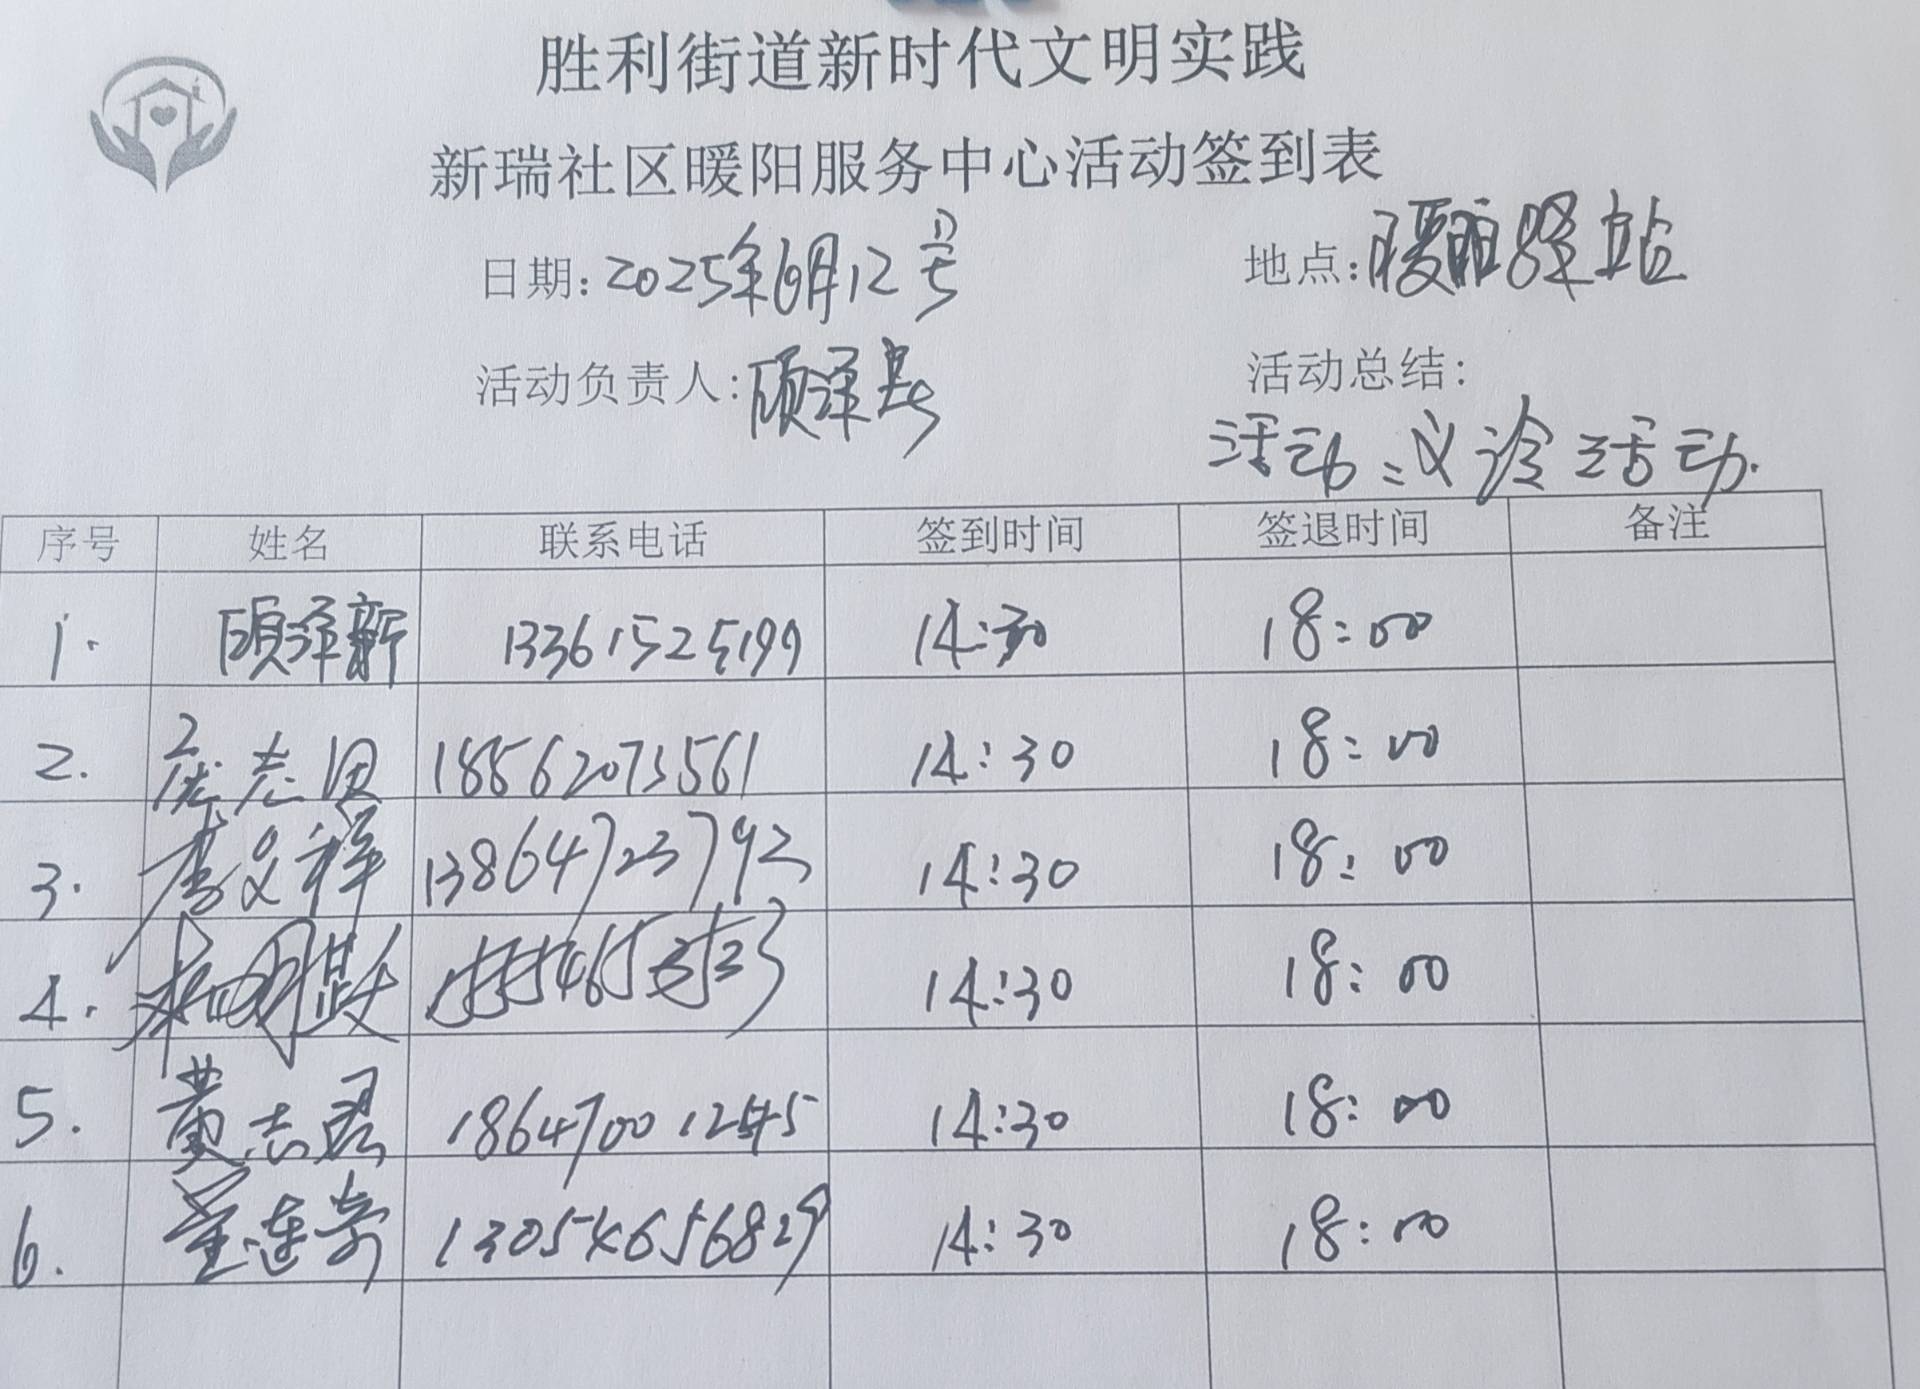 胜利街道新时代文明实践
新瑞社区暖阳服务中心活动签到表
日期:2025年6月12号 地点:暖阳驿站
活动负责人:顾泽 活动总结:
活动:义诊活动.
序号 姓名 联系电话 签到时间 签退时间 备注
1. 顾泽新 13361525199 14:30 18:00
2. 庞志国 18562073561 14:30 18:00
3. 李文祥 13864723792 14:30 18:00
4. 明跃 14:30 18:00
5. 黄志君 18647001245 14:30 18:00
6. 连奇 13054656829 14:30 18:00